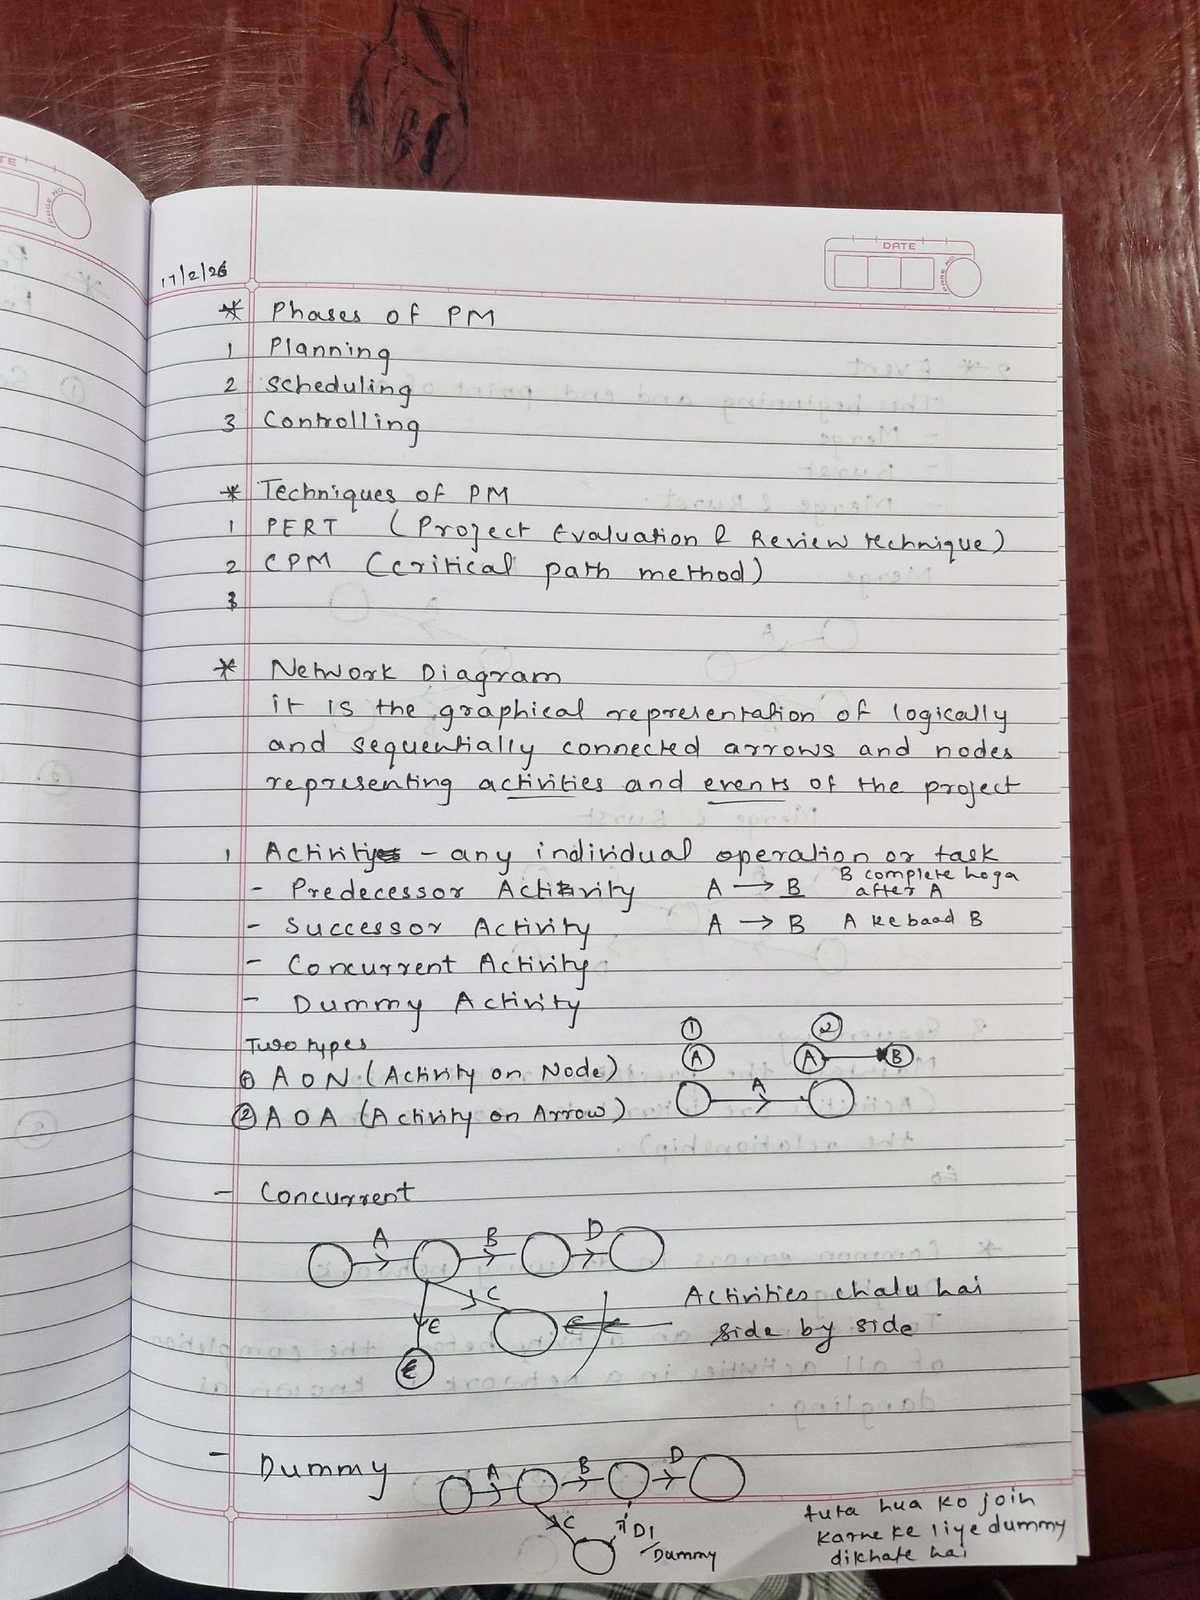 17/2/26
DATE
PAGE NO
* Phases of PM
1 Planning
2 Scheduling
3 Controlling
* Techniques of PM
1 PERT (Project Evaluation & Review technique)
2 CPM (critical path method)
3
* Network Diagram
it is the graphical representation of logically
and sequentially connected arrows and nodes
representing activities and events of the project
1 Activity - any individual operation or task
- Predecessor Activity A → B B complete hoga
after A
- Successor Activity A → B A ke baad B
- Concurrent Activity
- Dummy Activity
Two types ① ②
① AON (Activity on Node) A A B
② AOA (Activity on Arrow) A
- Concurrent
A B D
C
E
E
Activities chalu hai
side by side
- Dummy A B D
C
D1
Dummy
tuta hua ko join
karne ke liye dummy
dikhate hai